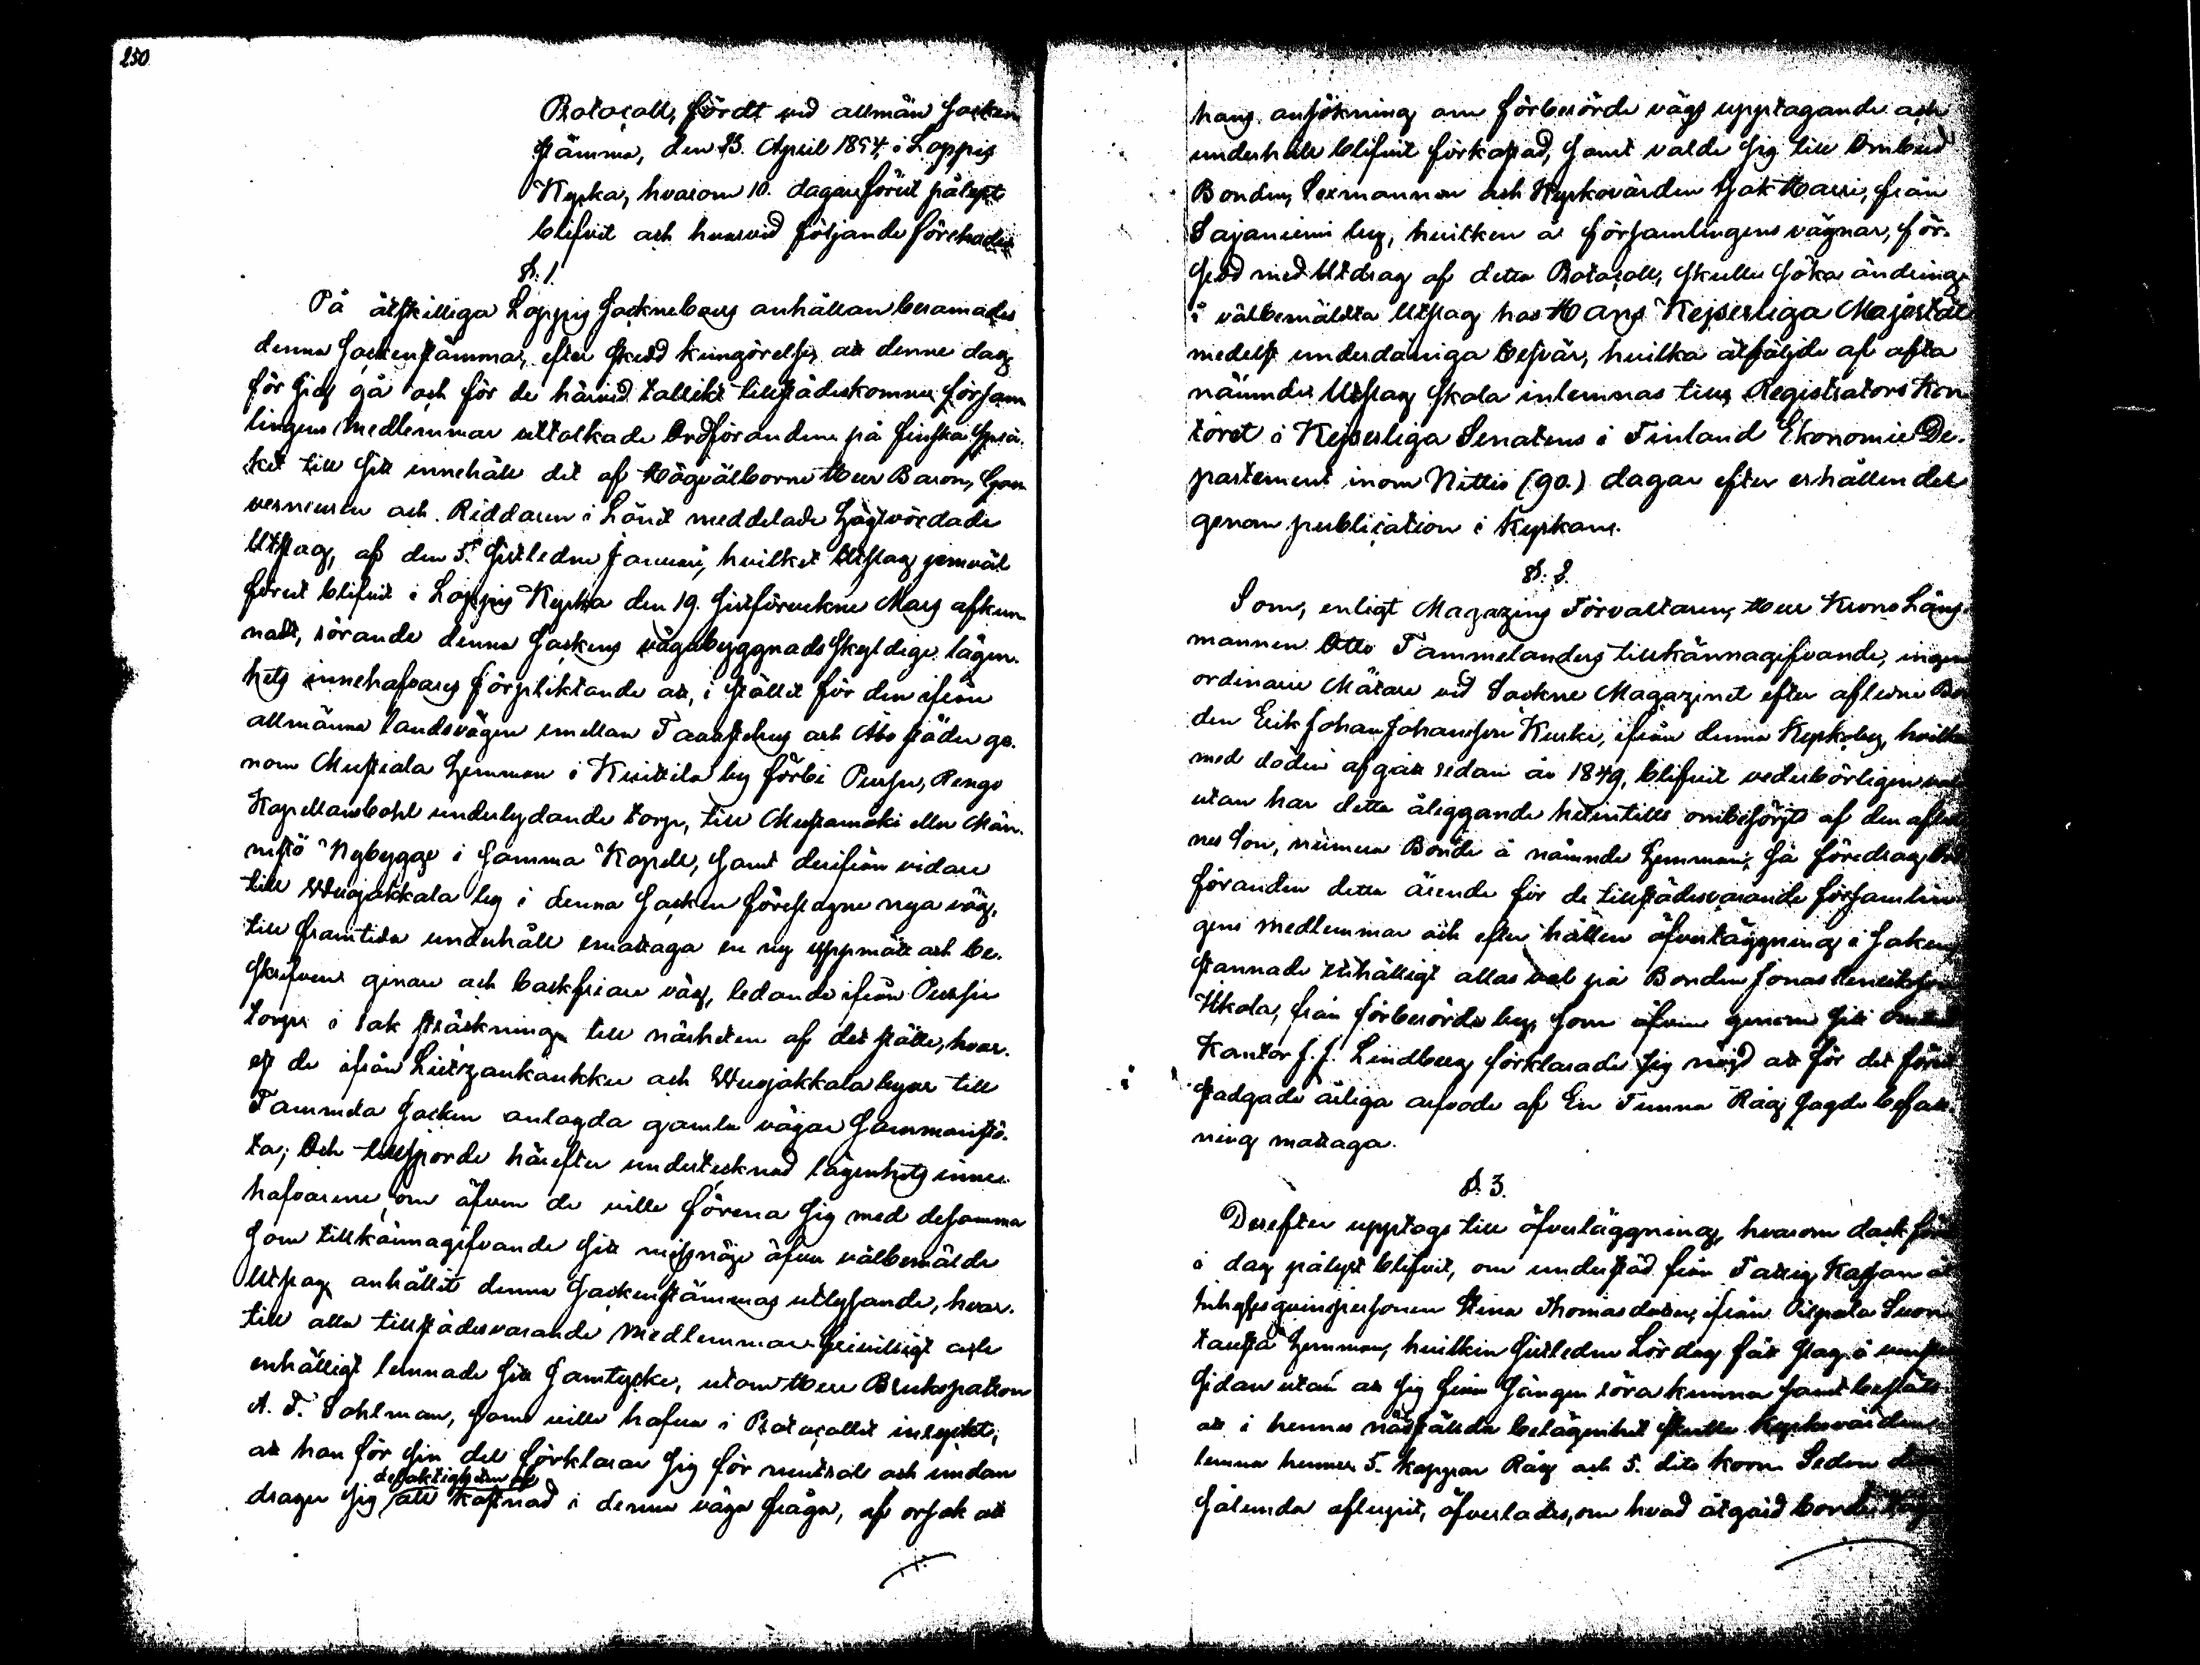 250
Protocoll, fördt vid allmän Socken
stämma, den 23. April 1854, i Loppis
Kyrka, hvarom 10. dagar förut pålyst
blifvit och hvarvid följande förehades
§. 1.
På åtskilliga Loppis Sockneboers anhållan beramades
denna Sockenstämma, efter skedd kungörelse, att denne dag
för sig gå och för de härvid talrikt tillstädeskomne försam
lingens Medlemmar uttolkade Ordföranden på finska språ-
ket till sitt innehåll det af Högvälborne Herr Baron, Gou
verneuren och Riddaren i Länet meddelade högtvördade
Utslag, af den 5. sistledne Januari, hvilket Utslag jemväl
förut blifvit i Loppis Kyrka den 19. sistförvekne Mars afkun
nadt, rörande denna Sockens vägabyggnads skyldige lägen-
hets innehafvares förpliktande att, i stället för den ifrån
allmänna landsvägen emellan Tavastehus och Åbo städer ge-
nom Mustiala hemman i Kuittila by förbi Pursu, Rengo
Kapellansbohl underlydande torp, till Mustamäki eller Män-
nistö Nybygge i samma Kapell, samt derifrån vidare
till Wuojakkala by i denna Socken föreslagne nya väg,
till framtida underhåll emottaga en ny uppmätt och be-
skrifven ginare och backfriare väg, ledande ifrån Pursu
torp i rak sträckning till närheten af det ställe, hvar-
est de ifrån Liesjärvi och Wuojakkala byar till
Tammela Socken anlagda gamla vägar sammanstö-
ta; Och tillsporde härefter undertecknad lägenhets inne-
hafvarene, om äfven de ville förena sig med desamma
som tillkännagifvande sitt missnöje öfver välbemälde
Utslag anhållit denna Sockenstämmas utlysande, hvar-
till alla tillstädesvarande Medlemmar frivilligt och
enhälligt lemnade sitt samtycke, utom Herr Brukspatron
A. F. Sohlman, som ville hafva i Protocollet inryckt,
att han för sin del förklarar sig för neutral och undan
delaktighet i
drager sig all kostnad i denna väga fråga, af orsak att
hans ansökning om förberörde vägs upptagande och
underhåll blifvit förkastad, samt valde sig till Ombud
Bonden, Sexmannen och Kyrkovärden Isak Harri, från
Sajaniemi by, hvilken å församlingens vägnar, för-
sedd med Utdrag af detta Protocoll, skulle söka ändring
i välbemäldta Utslag hos Hans Kejserliga Majestät
medelst underdåniga besvär, hvilka åtföljde af ofta
nämnde Utslag skola inlemnas till Registrators Kon
toret i Kejserliga Senatens i Finland Ekonomie De-
partement inom Nittio (90.) dagar efter erhållen del
genom publication i Kyrkan.
§. 2.
Som, enligt Magazins Förvaltaren, Herr Krono Läns-
mannen Otto Tammelanders tillkännagifvande, ingen
ordinarie Mätare vid Sockne Magazinet efter aflidne Bon
den Erik Johan Johansson Kurki, ifrån denna Kyrkoby, hvilken
med döden afgått redan år 1849, blifvit vederbörligen
utan har detta åliggande hitintills ombesörjts af den aflid
nes son, numera Bonde å nämnde hemman; så föredrog Ord
föranden detta ärende för de tillstädesvarande församlin
gens medlemmar och efter hållen öfverläggning i saken
stannade enhälligt allas val på Bonden Jonas Henriksson
Ukola, från förberörde by, som äfven genom sitt ombud
Kantor J. J. Lindberg förklarade sig nöjd att för det förut
stadgade årliga arfvode af En Tunna Råg sagde befatt-
ning mottaga.
§. 3.
Derefter upptogs till öfverläggning, hvarom dock först
i dag pålyst blifvit, om understöd från Fattig Kassan åt
Inhyses qvinspersonen Stina Thomasdotter, ifrån Pilpala Suon
tausta hemman, hvilken sistledne Lördag fått slag å venstra
sidan utan att sig från sängen röra kunna samt beslöts
att i hennes nödställda belägenhet skulle Kyrkovärden
lemna henne 5. kappar Råg och 5. dito korn. Sedan den
sålunda aflupit, öfverlades, om hvad åtgärd borde